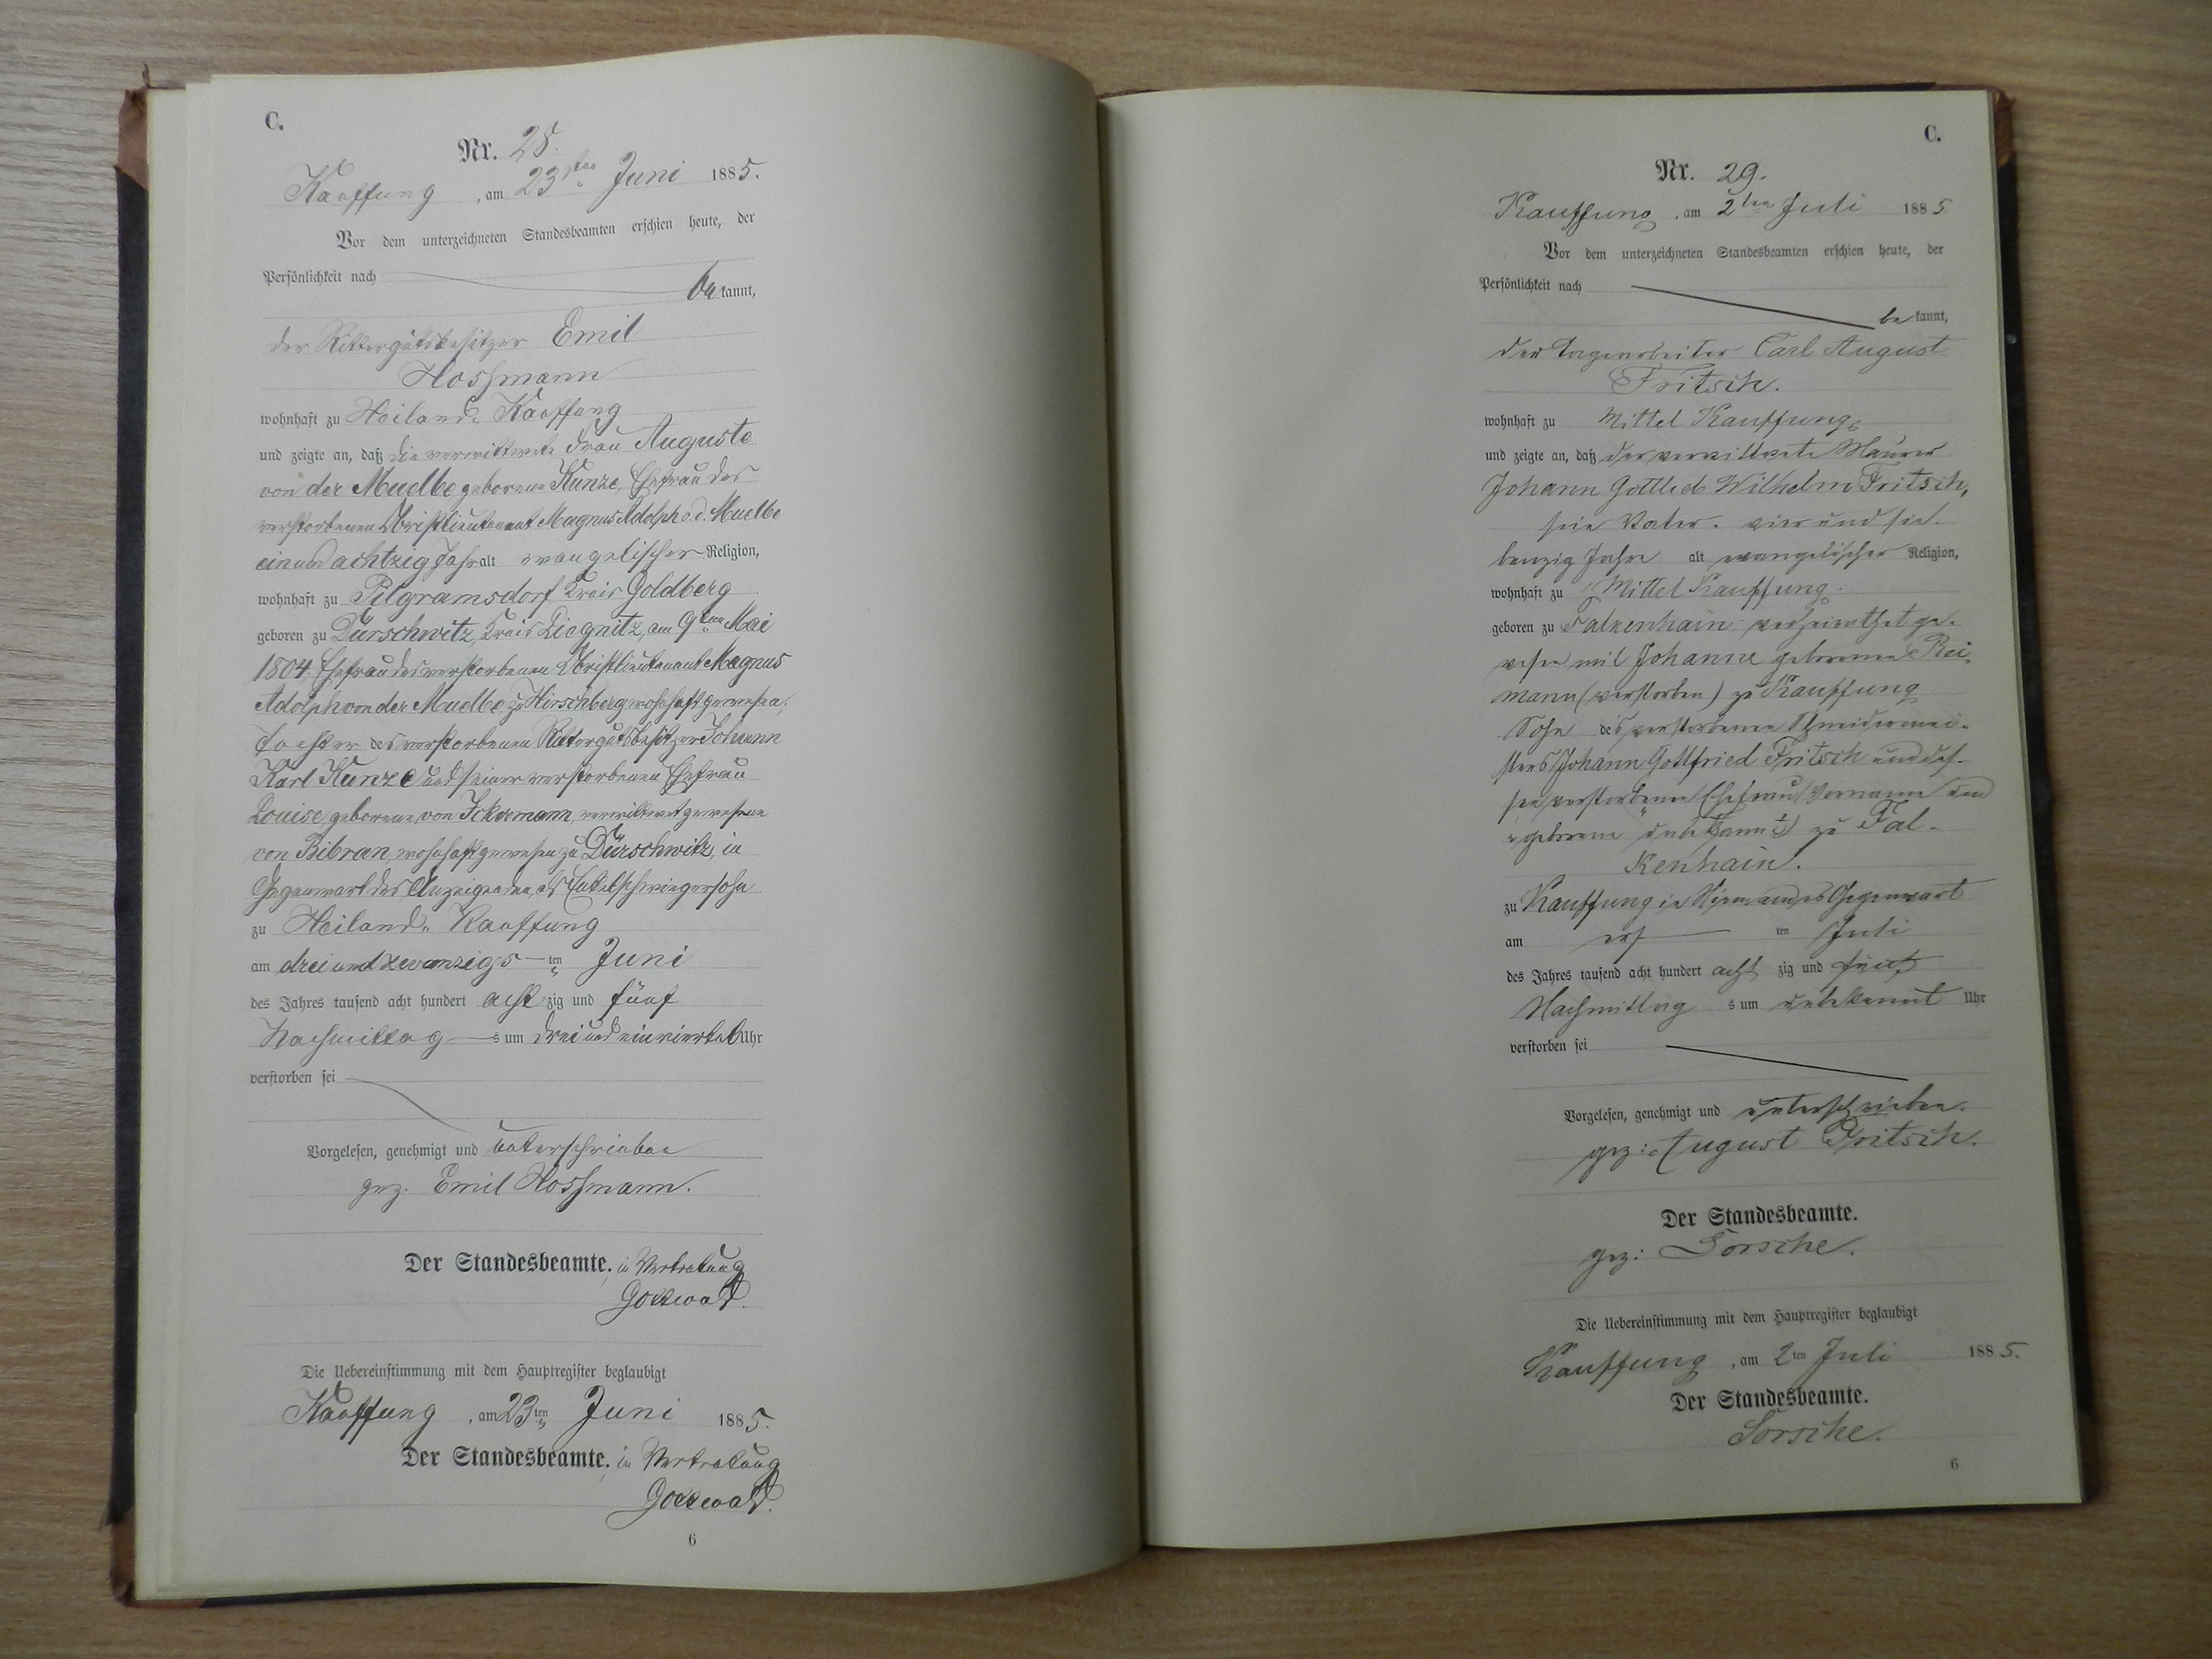 C.
Nr. 28.
Kauffung, am 23sten Juni 1885.
Vor dem unterzeichneten Standesbeamten erschien heute, der
Persönlichkeit nach
be kannt,
der Rittergutsbesitzer Emil
Hoffmann
wohnhaft zu Heiland-Kauffung
und zeigte an, daß die verwittwete Frau Auguste
von der Muelbe geborene Kunze, Ehefrau des
verstorbenen Obristlieutenant Magnus Adolph v. d. Muelbe
einundachtzig Jahr alt evangelischer Religion,
wohnhaft zu Pilgramsdorf Kreis Goldberg
geboren zu Dürschwitz, Kreis Liegnitz, am 9ten Mai
1804, Ehefrau des verstorbenen Obristlieutenant Magnus
Adolph von der Muelbe zu Hirschberg wohnhaft gewesen,
Tochter des verstorbenen Rittergutsbesitzer Johann
Karl Kunze und seiner verstorbenen Ehefrau
Louise geborene von verwittwet gewesene
von Bibran, wohnhaft gewesen zu Dürschwitz, in
Gegenwart des Anzeigenden, als Enkelschwiegersohn
zu Heiland-Kauffung
am drei und zwanzigs ten Juni
des Jahres tausend acht hundert acht zig und fünf
Nachmittag s um drei und ein viertel Uhr
verstorben sei
Vorgelesen, genehmigt und unterschrieben
gez. Emil Hoffmann.
Der Standesbeamte. in Vertretung
Die Uebereinstimmung mit dem Hauptregister beglaubigt
Kauffung, am 23ten Juni 1885.
Der Standesbeamte. in Vertretung
6
C.
Nr. 29.
Kauffung, am 2ten Juli 1885
Vor dem unterzeichneten Standesbeamten erschien heute, der
Persönlichkeit nach
be kannt,
der Tagearbeiter Carl August
Fritsch.
wohnhaft zu Mittel Kauffung
und zeigte an, daß der verwittwete Maurer
Johann Gottlieb Wilhelm Fritsch,
sein Vater. vier und sie-
benzig Jahre alt evangelischer Religion,
wohnhaft zu Mittel Kauffung.
geboren zu Falkenhain verheirathet ge-
wesen mit Johanne geborene Rei-
mann (verstorben) zu Kauffung
Sohn des verstorbenen Schneidermei-
sters Johann Gottfried Fritsch und des-
sen verstorbenen Ehefrau (Vorname und
geborene unbekannt) zu Fal-
kenhain.
zu Kauffung in Niemandes Gegenwart
am ers ten Juli
des Jahres tausend acht hundert acht zig und fünf
Nachmittag s um unbekannt Uhr
verstorben sei
Vorgelesen, genehmigt und unterschrieben.
gez: August Fritsch.
Der Standesbeamte.
gez: Sorsche.
Die Uebereinstimmung mit dem Hauptregister beglaubigt
Kauffung, am 2ten Juli 1885.
Der Standesbeamte.
Sorsche.
6